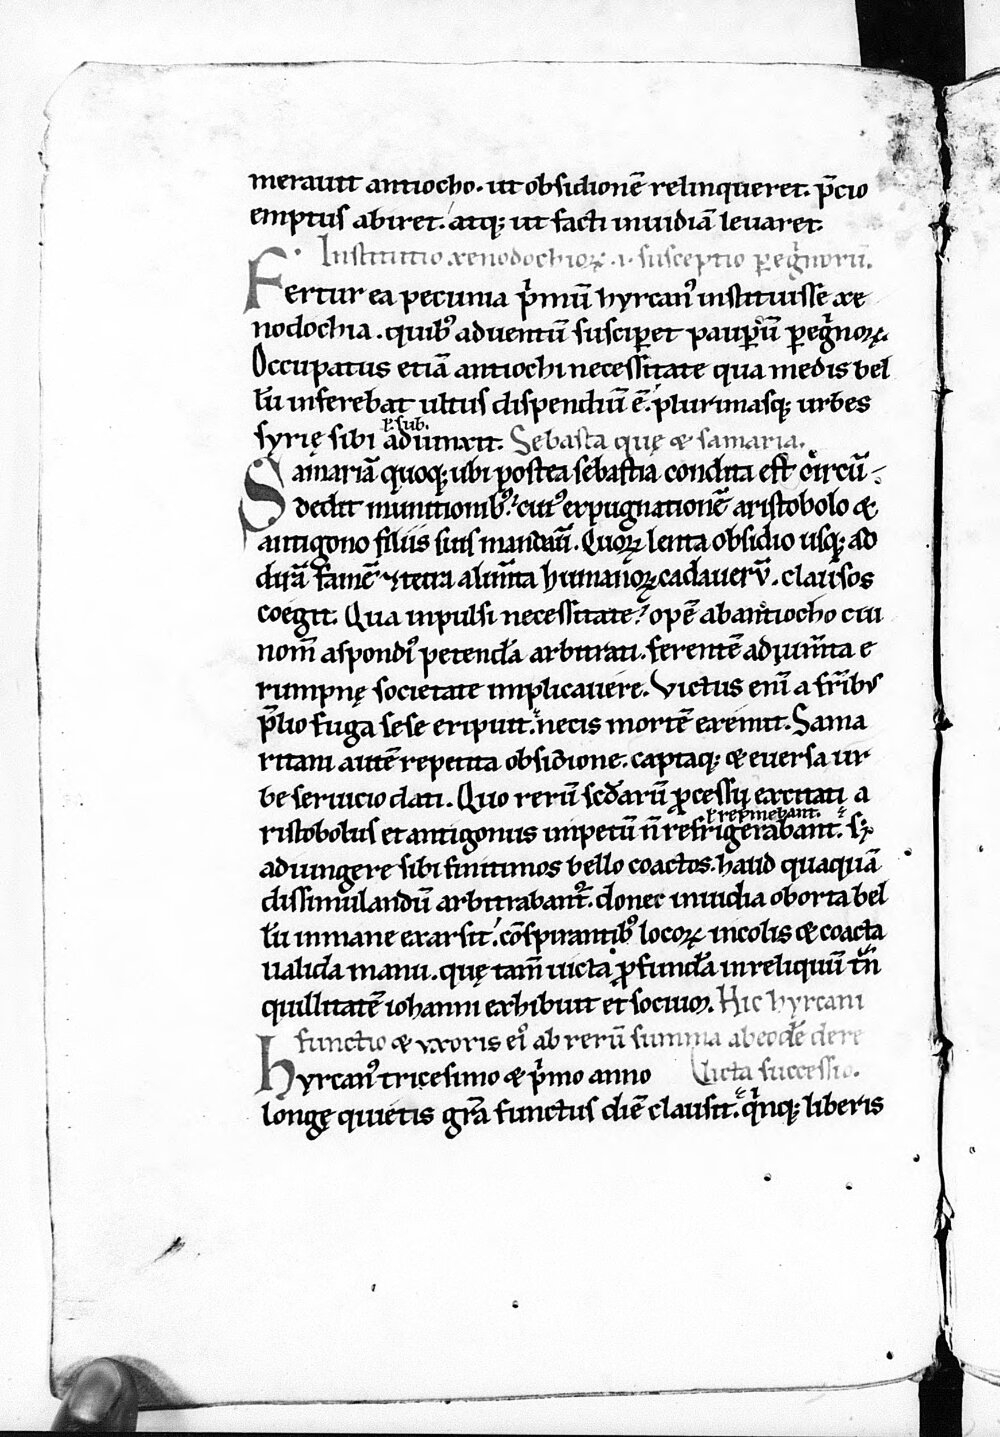 merauit antiocho. ut obsidionē relinqueret. p̄cio
emptus abiret. atq; ut facti inuidiā leuaret.
Institutio xenodochioꝝ .i. susceptio ꝑegͥnorū.
Fertur ea pecunia pͥmū hyrcanꝰ instituisse xe
nodochia. quibꝰ aduentū susciꝑet pauꝑū ꝑegͥnoꝝ.
Occupatus etiā antiochi necessitate qua medis bel
lū inferebat ultus dispendiū ē. plurimasq; urbes
ł sub.
syrię sibi adiunxit. Sebasta quę & samaria.
Samariā quoq; ubi postea sebastia condita est circū
dedit munitionibꝰ. cuiꝰ expugnationē aristobolo &
antigono filiis suis mandauı̄. Quoꝝ lenta obsidio usq; ad
dirā famē & tetra alim̄ta humanoꝝ cadaverū. clausos
coegit. Qua inpulsi necessitate. opē ab antiocho cui
nom̄ aspondiꝰ petendā arbitrati. ferentē adium̄ta e
rumpnę societate implicauere. Victus enī a fr̄ibus
p̄lio fuga sese eripuit. necis mortē exemit. Sama
ritani autē repetita obsidione. captaq; & euersa ur
be seruicio dati. Quo rerū scd̄arū ꝓcessu excitati a
ł rep̄mebant.
ristobolus et antigonus impetū n̄ refrigerabant. sꝫ
adiungere sibi finitimos bello coactos. haud quaquā
dissimulandū arbitrabantꝰ. donec inuidia oborta bel
lū inmane exarsit. cōspirantibꝰ locoꝝ incolis & coacta
ualida manu. quę tam̄ uicta ꝓfundā in reliquū tn̄
quillitatē iohanni exhibuit et sociūoꝝ. Hic hyrcani
functio & uxoris eiꝰ ab rerū summa abcodē dere
hyrcanꝰ tricesimo & pͥmo anno licta successio.
longę quietis gr̄a functus diē clausit. qͥnq; liberis